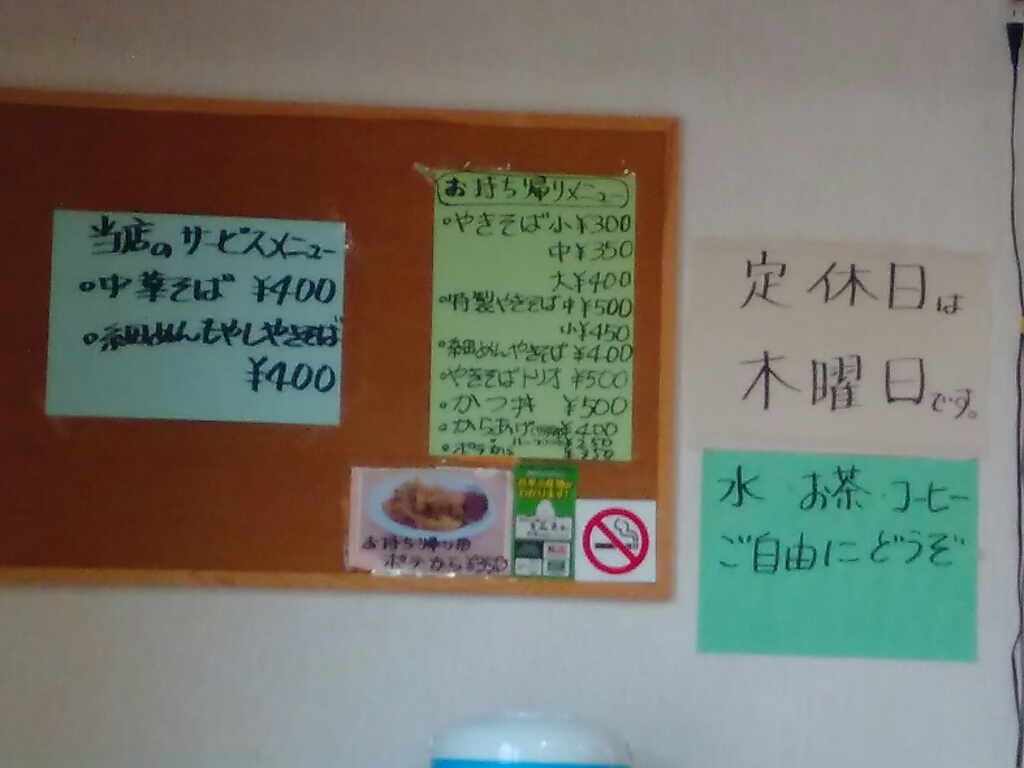 当店のサービスメニュー
•中華そば ¥400
•細めんもやしやきそば
¥400
お持ち帰りメニュー
•やきそば小¥300
中¥350
大¥400
•特製やきそば中¥500
小¥450
•細めんやきそば ¥400
•やきそばトリオ ¥500
•かつ丼 ¥500
•からあげ ¥400
•ポテから ¥350
お持ち帰り用
ポテから¥350
わかります!
定休日は
木曜日です。
水 お茶 コーヒー
ご自由にどうぞ